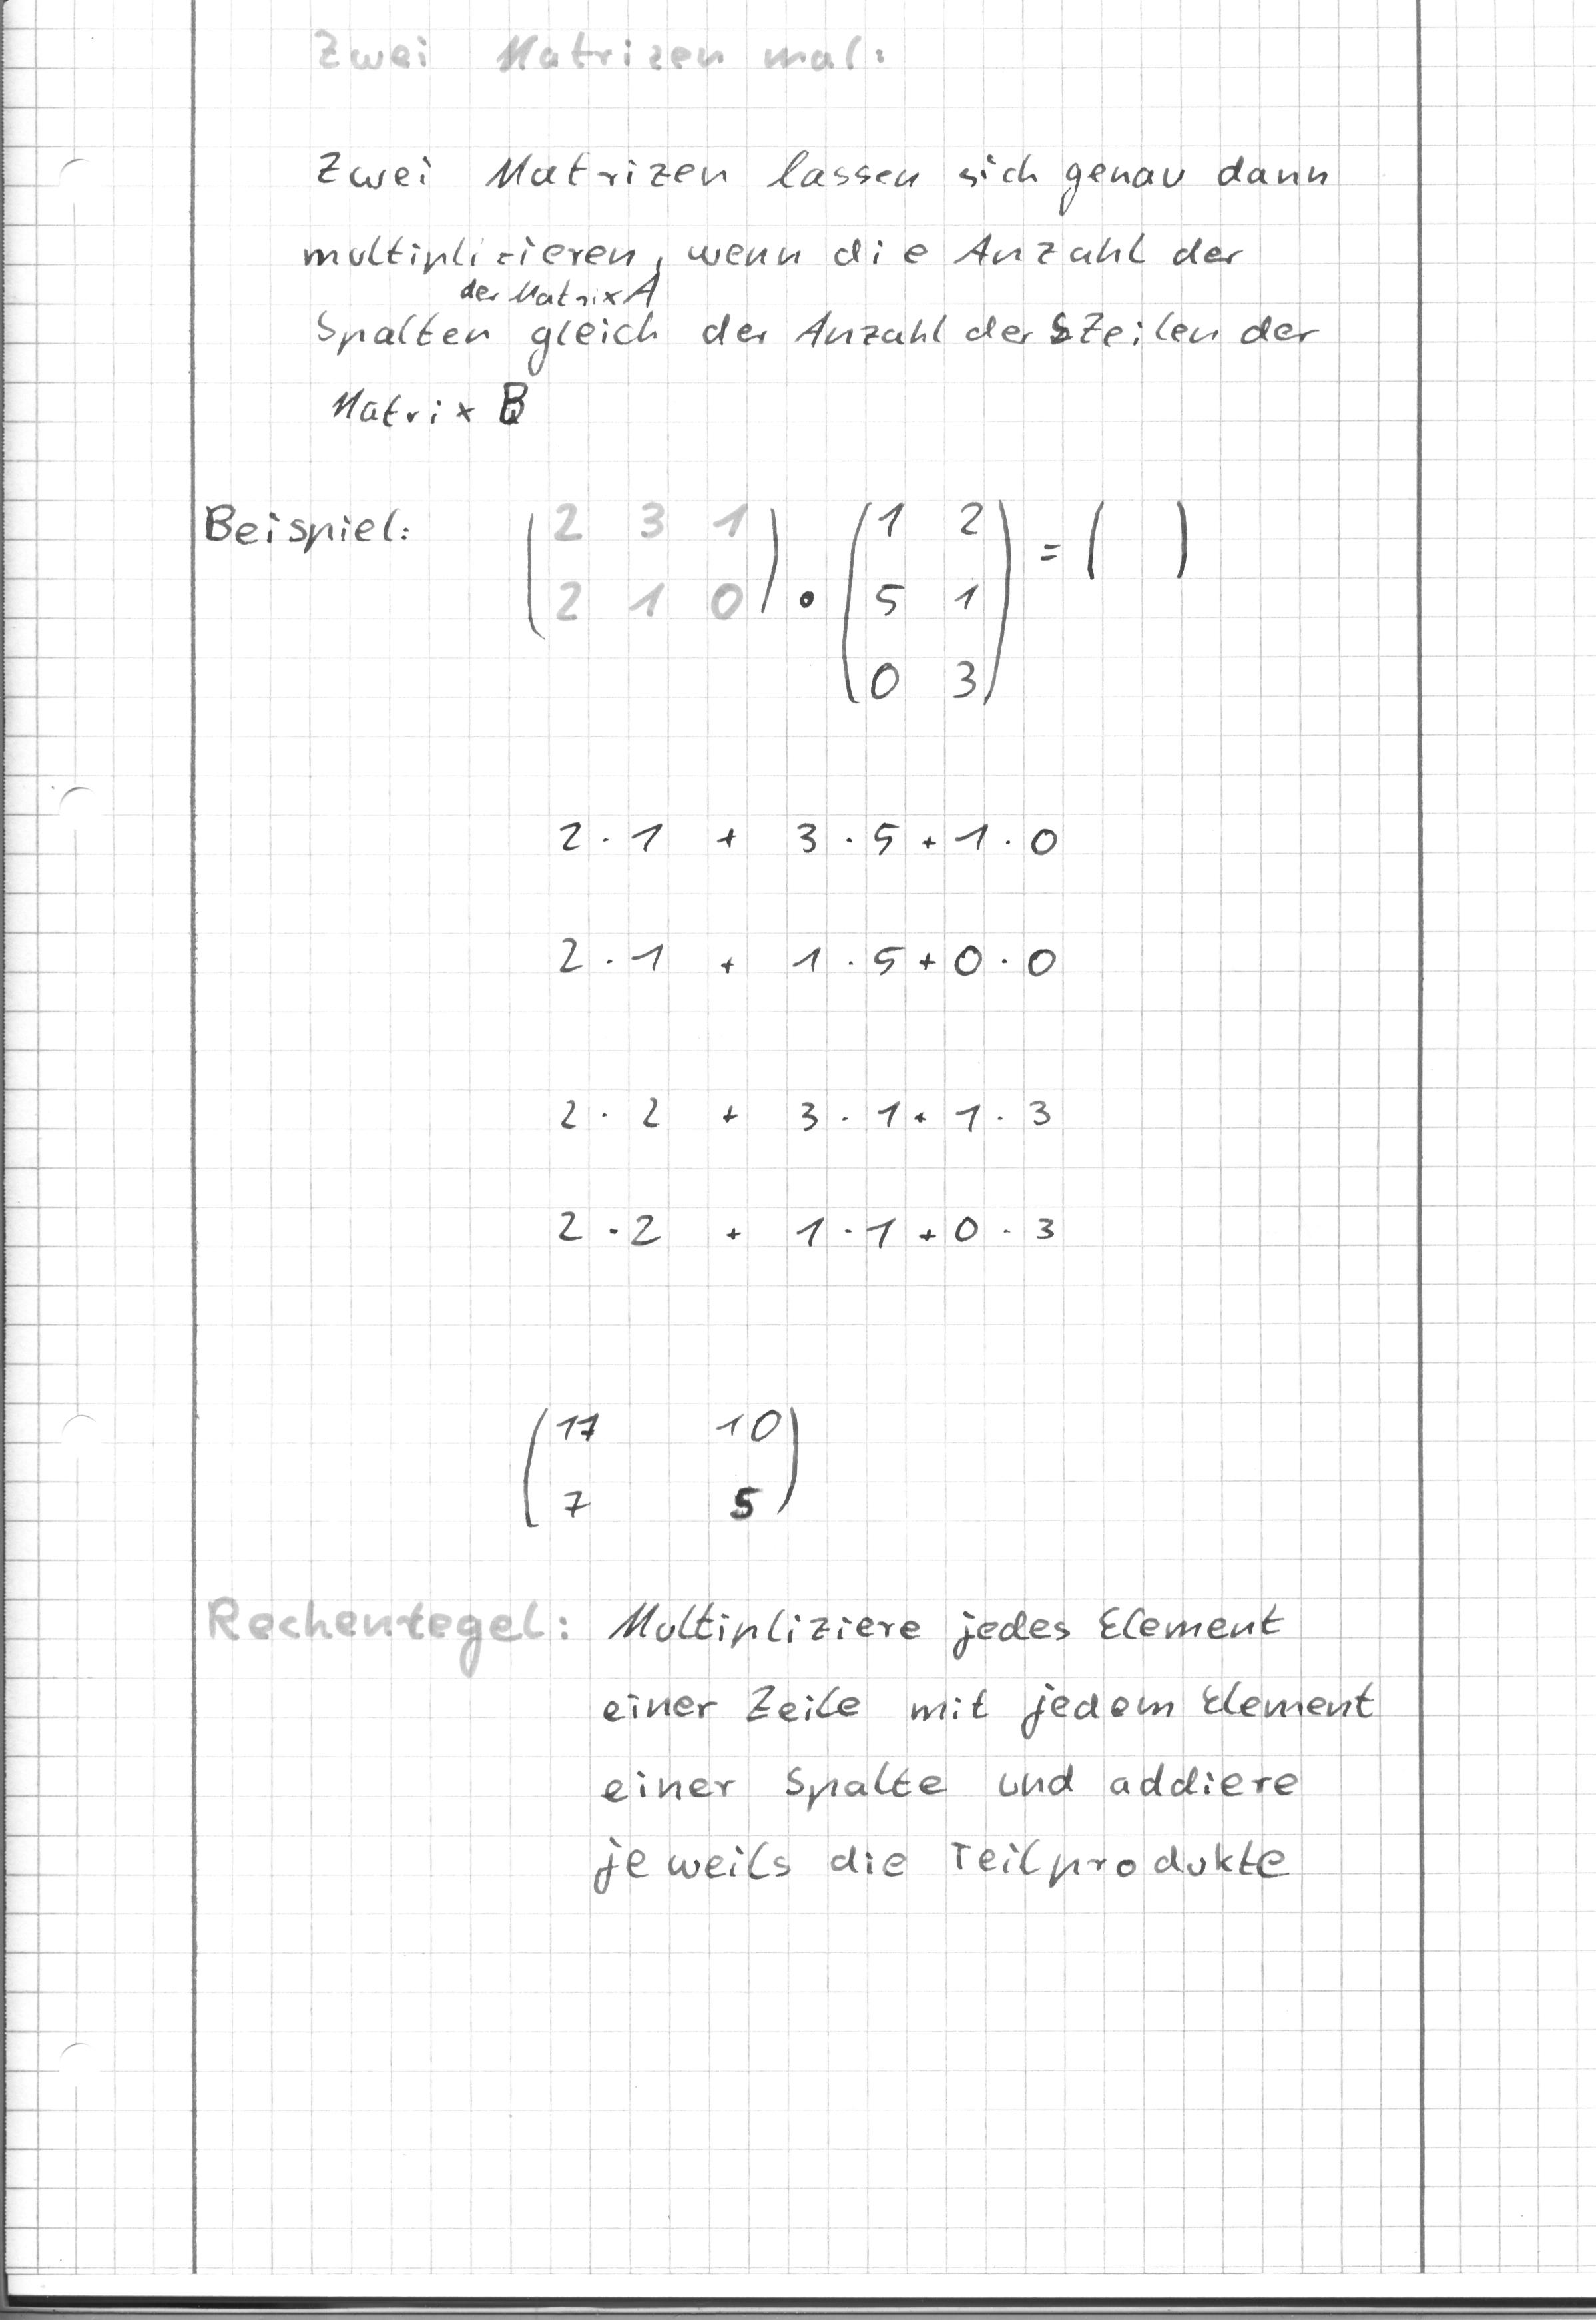 Zwei Matrizen mal:
Zwei Matrizen lassen sich genau dann
multiplizieren, wenn die Anzahl der
der Matrix A
Spalten gleich der Anzahl der Zeilen der
Matrix B
Beispiel: (2 3 1) (1 2) = ( )
(2 1 0) • (5 1)
(0 3)
2 · 1 + 3 · 5 + 1 · 0
2 · 1 + 1 · 5 + 0 · 0
2 · 2 + 3 · 1 + 1 · 3
2 · 2 + 1 · 1 + 0 · 3
(17 10)
(7 5)
Rechenregel: Multipliziere jedes Element
einer Zeile mit jedem Element
einer Spalte und addiere
jeweils die Teilprodukte